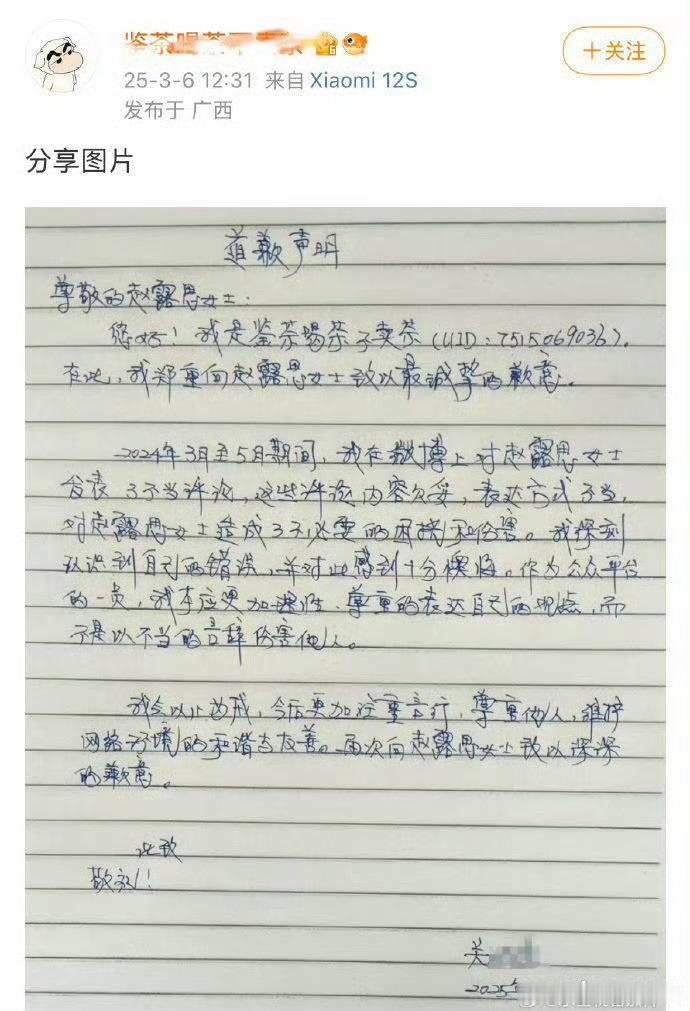 鉴茶喝茶不卖茶
25-3-6 12:31 来自 Xiaomi 12S
发布于 广西
+关注
分享图片
道歉声明
尊敬的赵露思女士：
您好！我是鉴茶喝茶不卖茶（UID：7515069036）。
在此，我郑重向赵露思女士致以最诚挚的歉意。
2024年3月至5月期间，我在微博上对赵露思女士
发表了不当评论，这些评论内容欠妥，表达方式不当，
对赵露思女士造成了不必要的困扰和伤害。我深刻
认识到自己的错误，并对此感到十分懊悔。作为公众平台
的一员，我本应更加理性、尊重的表达自己的观点，而
不是以不当的言辞伤害他人。
我会以此为戒，今后更加注重言行，尊重他人，维护
网络环境的和谐与友善。再次向赵露思女士致以深深
的歉意。
此致
敬礼！
关
2025年